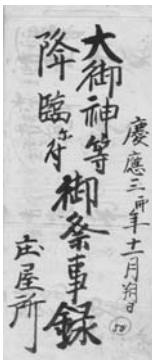 慶應三卯年十一月朔日
大御神等
降臨ニ付
御祭事録
庄屋所
58